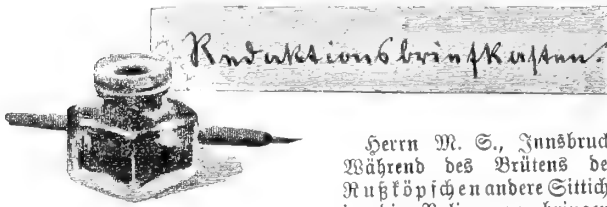 Redaktionsbriefkasten.
Herrn M. S., Innsbruck
Während des Brütens de
Rußköpfchen andere Sittich